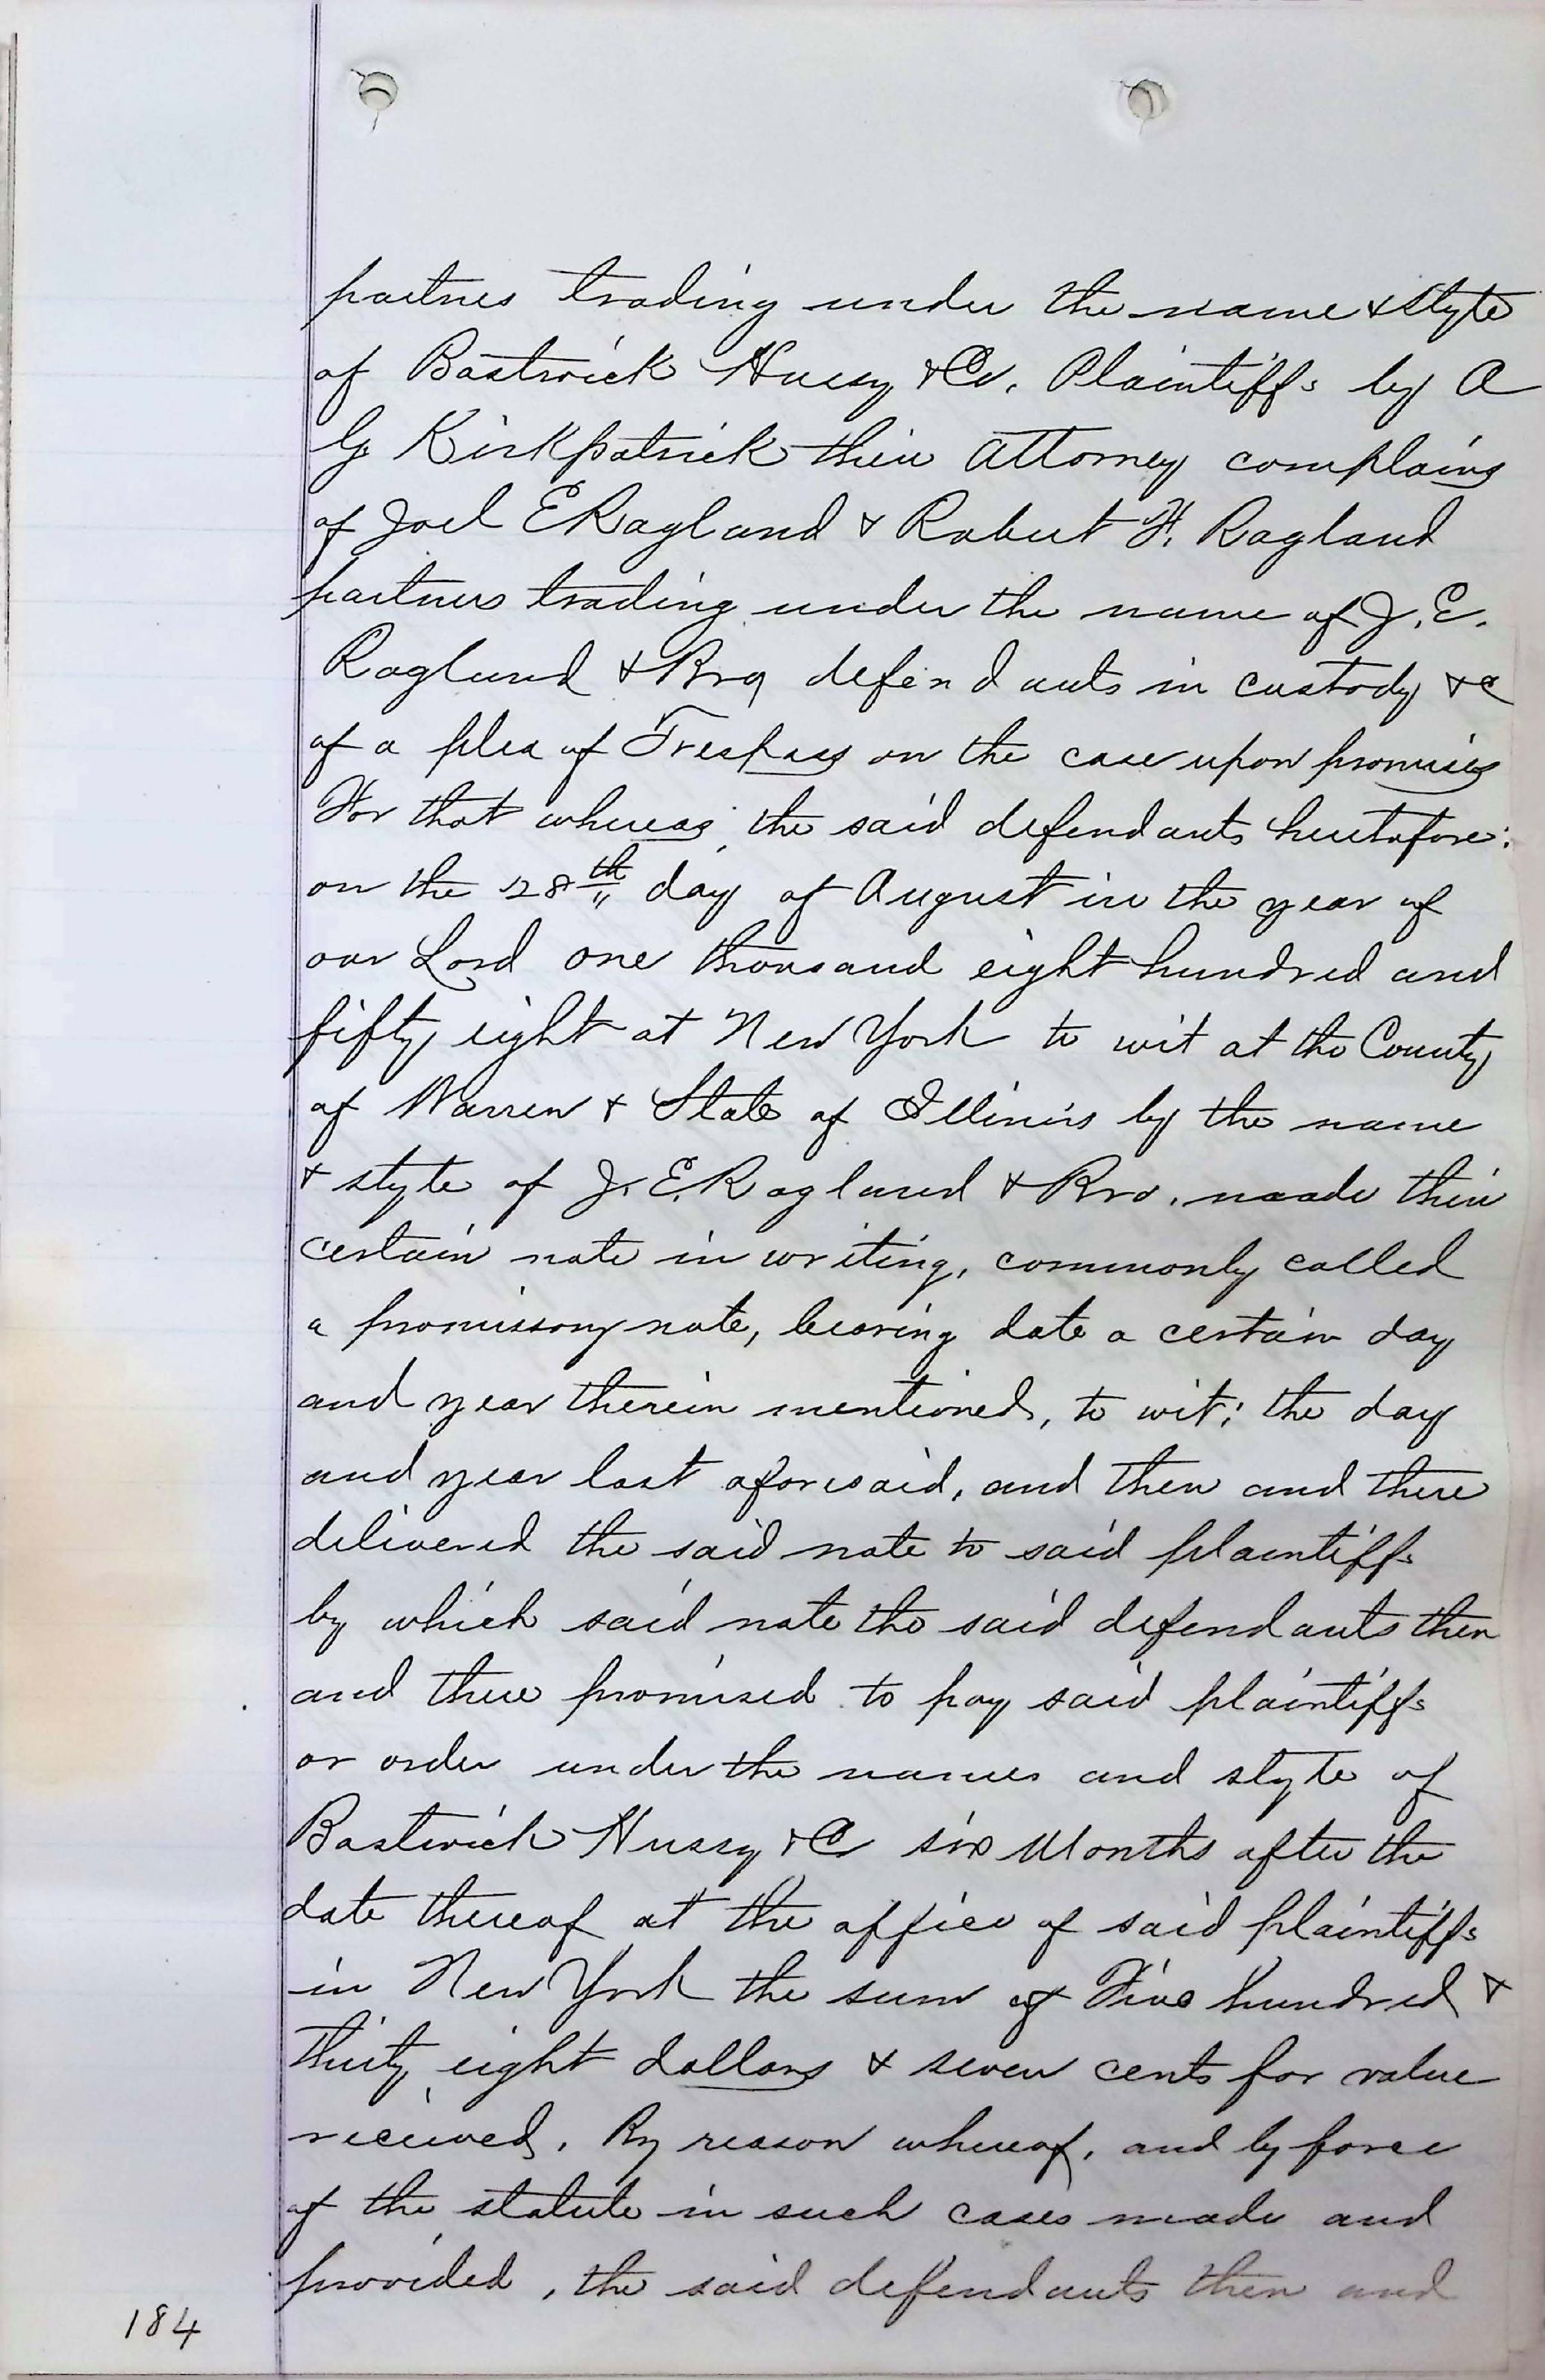 partnes trading under the name & style
of Bostwick Hussy & Co. Plaintiffs by A
G. Kirkpatrick their Attorney complains
of Joel E Ragland & Robert H. Ragland
partners trading under the name of J. E.
Ragland & Bro defendants in custody &c
of a plea of Trespass on the case upon promises
For that whereas the said defendants heretofore:
on the 28th day of August in the year of
our Lord one thousand eight hundred and
fifty eight at New York to wit at the County
of Warren & State of Illinois by the name
& style of J. E. Ragland & Bro. made their
certain note in writing, commonly called
a promissory note, bearing date a certain day
and year therein mentioned, to wit; the day
and year last aforesaid, and then and there
delivered the said note to said plaintiffs
by which said note the said defendants then
and there promised to pay said plaintiffs
or order under the names and style of
Bostwick Hussy & Co six Months after the
date thereof at the office of said plaintiffs
in New York the sum of Five hundred &
thirty eight dollars & seven cents for value
received. By reason whereof, and by force
of the statute in such cases made and
provided, the said defendants then and
184